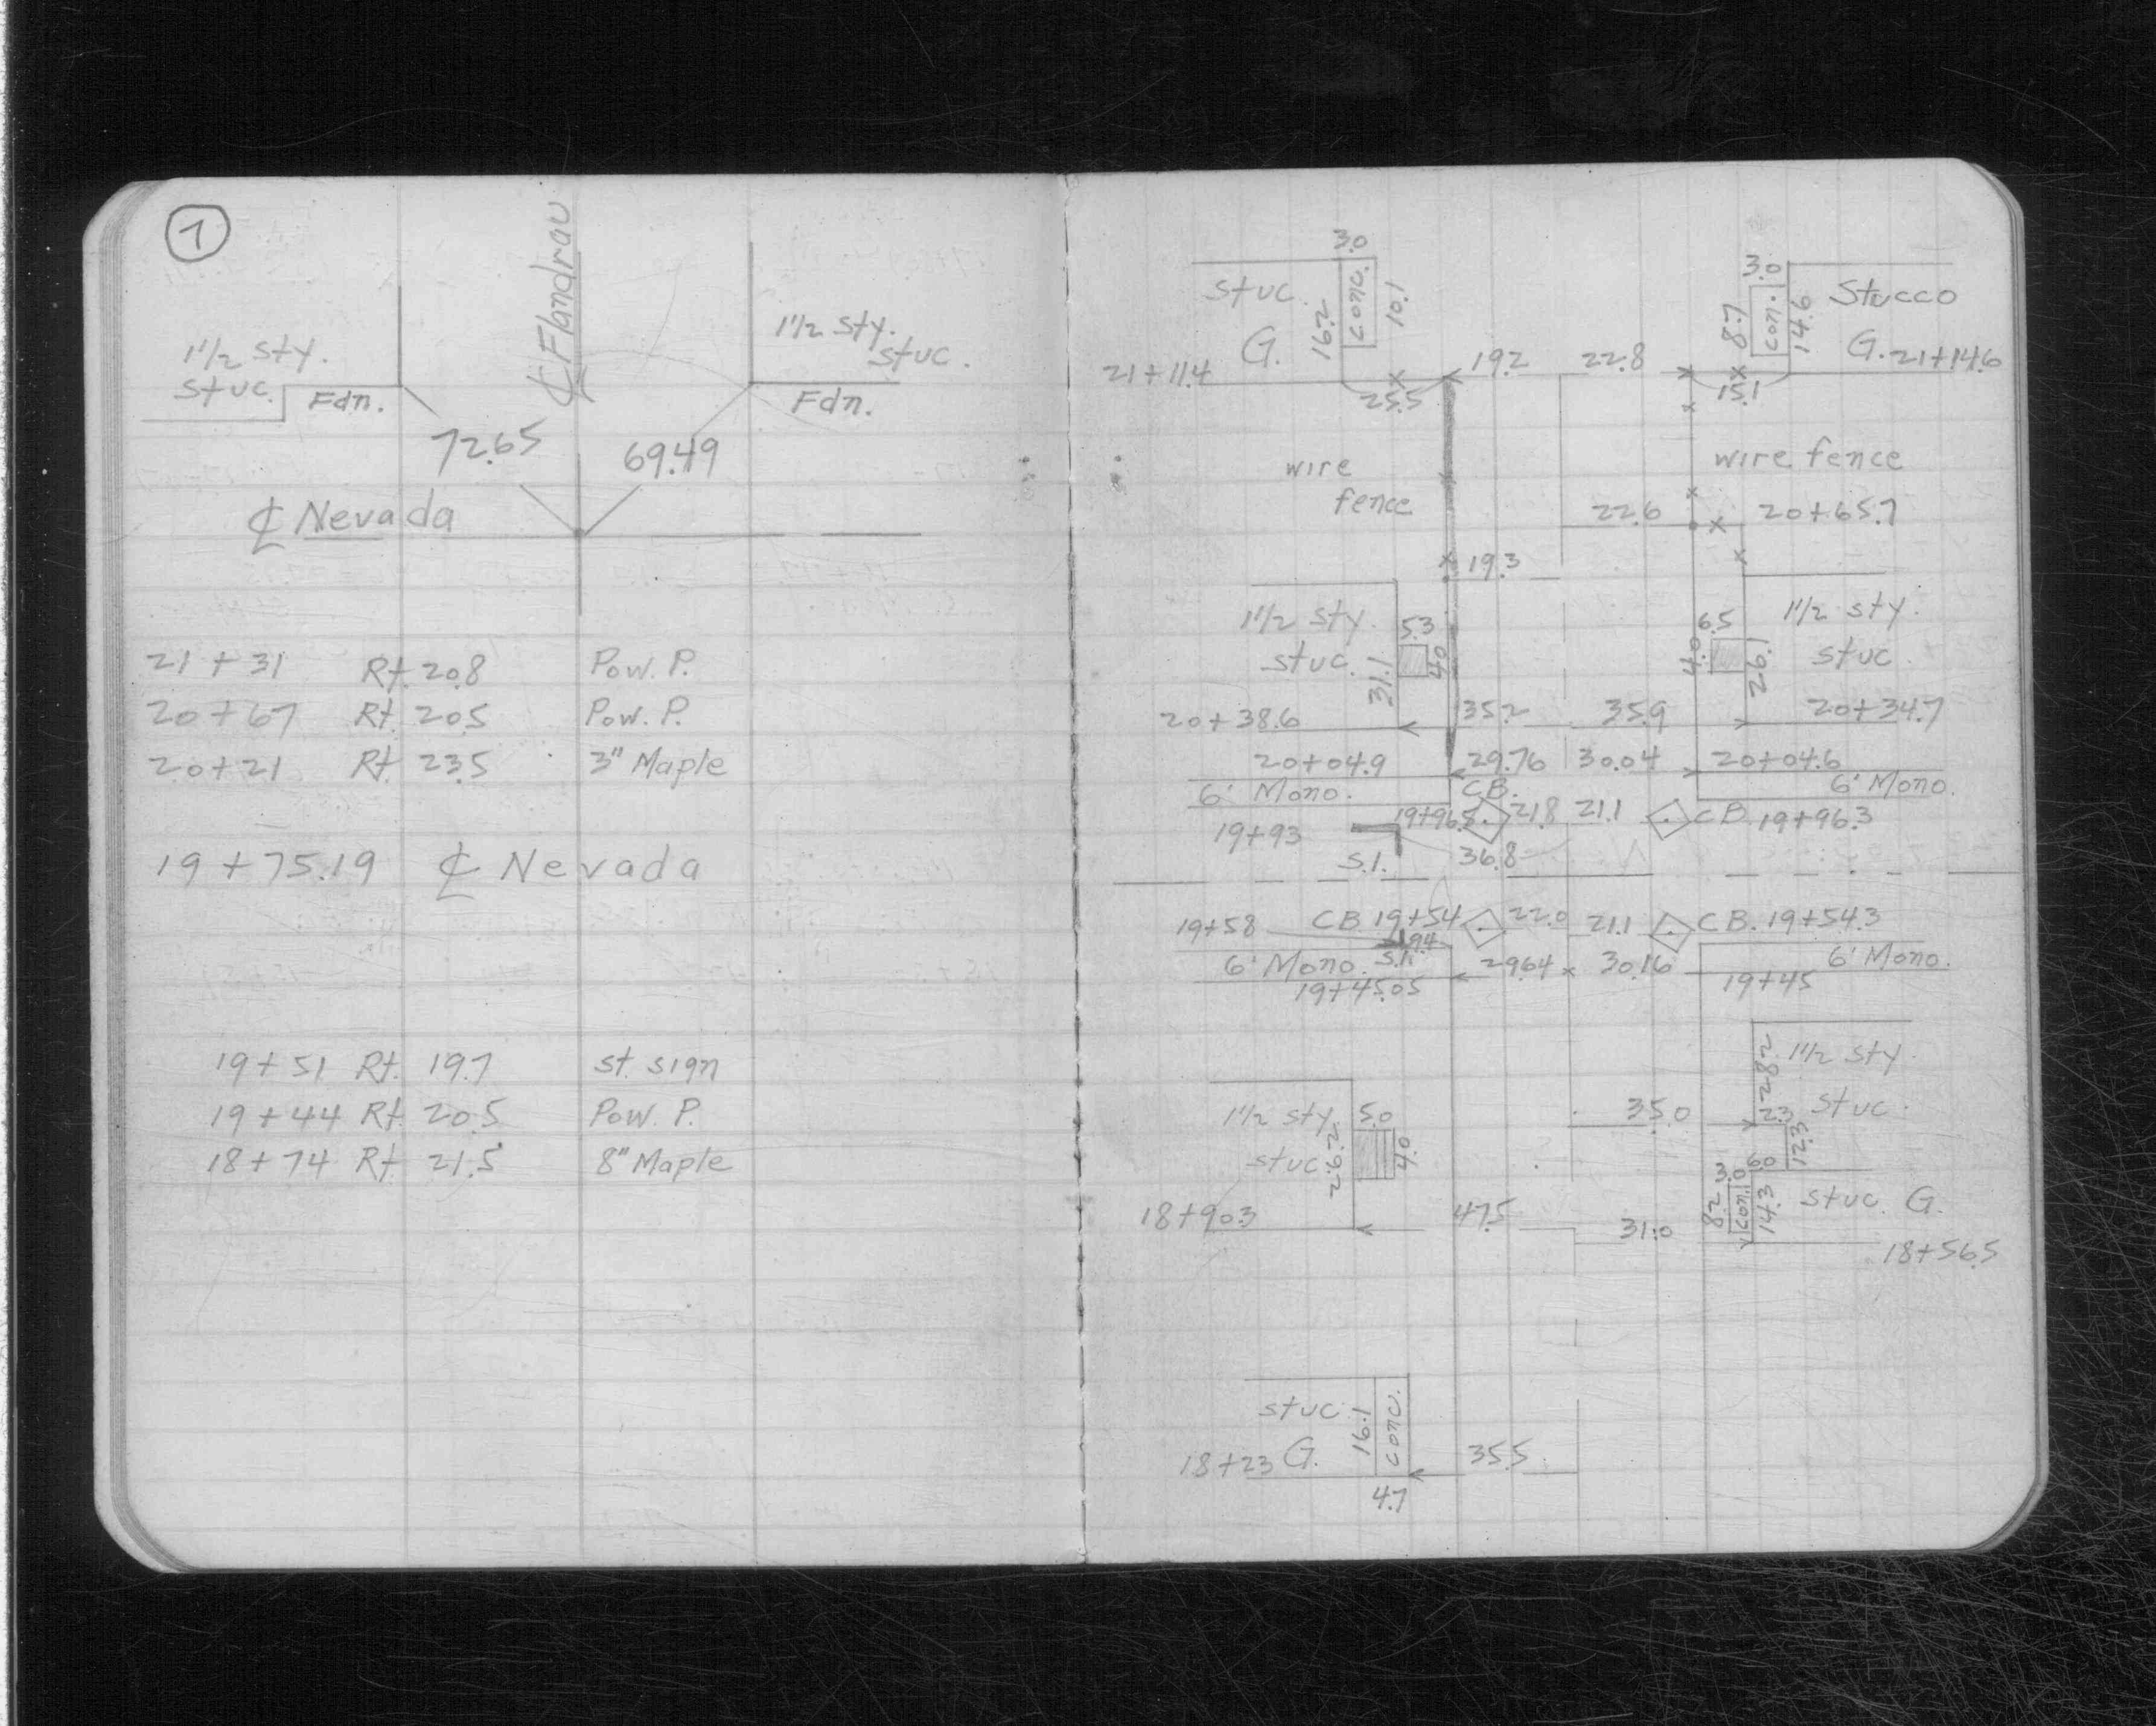 7
℄ Flandrau
1½ sty.
stuc.
Fdn.
1½ sty.
stuc.
Fdn.
72.65
69.49
℄ Nevada
21+31 Rt. 20.8 Pow. P.
20+67 Rt. 20.5 Pow. P.
20+21 Rt. 23.5 3" Maple
19+75.19 ℄ Nevada
19+51 Rt. 19.7 st. sign
19+44 Rt. 20.5 Pow. P.
18+74 Rt. 21.5 8" Maple
3.0
stuc.
G.
16.2
conc.
10.1
21+11.4
25.5
19.2
22.8
3.0
8.7
con.
14.6
Stucco
G. 21+14.6
15.1
wire
fence
wire fence
22.6
20+65.7
19.3
1½ sty.
stuc.
5.3
31.1
4.0
6.5
4.0
26.1
1½ sty.
stuc.
20+38.6
35.2
35.9
20+34.7
20+04.9
29.76
30.04
20+04.6
6' Mono.
C.B.
6' Mono.
21.8
21.1
C.B. 19+96.3
19+93
36.8
S.I.
19+58
C.B. 19+54
22.0
21.1
C.B. 19+54.3
6' Mono.
S.I.
29.64
30.16
6' Mono.
19+45.05
19+45
28.2
1½ sty.
stuc.
1½ sty.
stuc.
5.0
26.2
4.0
35.0
2.3
12.3
6.0
3.0
8.2
con.
14.3
stuc. G.
18+90.3
47.5
31.0
18+56.5
stuc.
G.
16.1
conc.
18+23
35.5
4.7